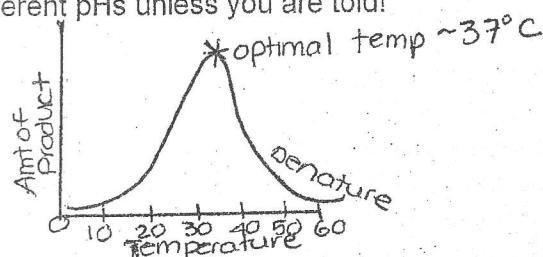 erent pHs unless you are told!
optimal temp ~37°C
Amt of
Product
Denature
0 10 20 30 40 50 60
Temperature